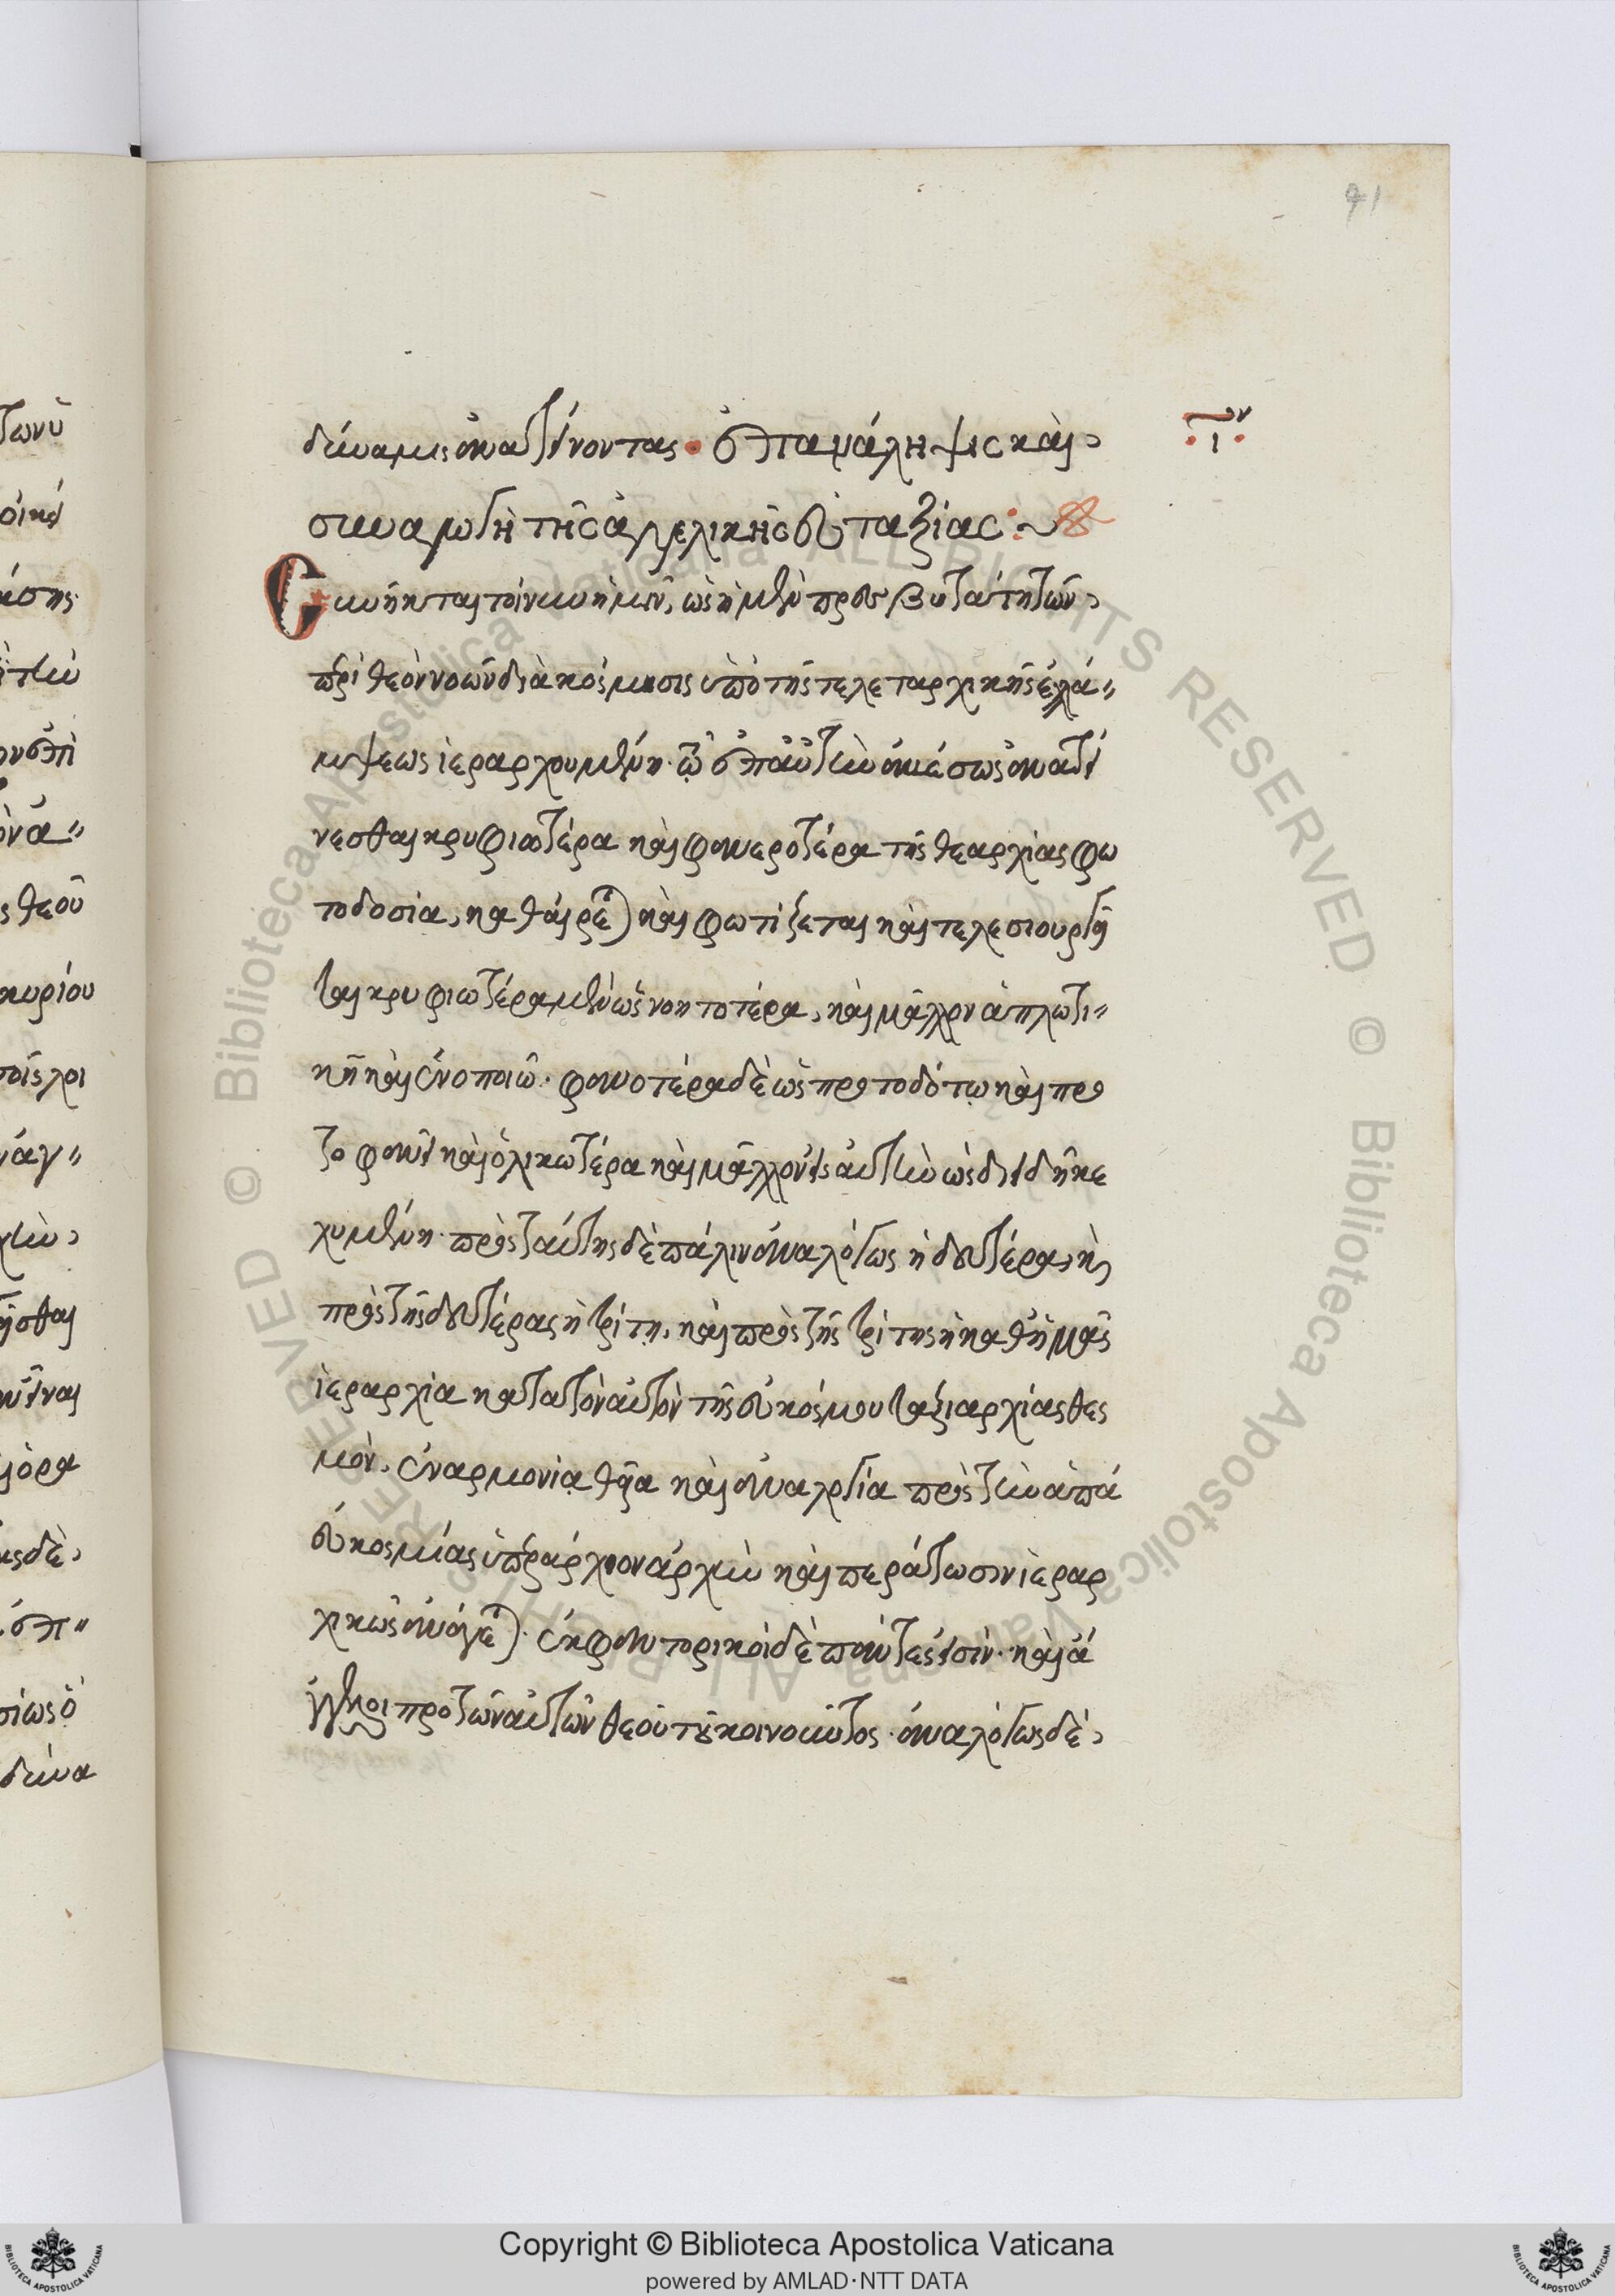 41
ι ̄ον
δύναμις ἀνατείνοντας· ἐπανάληψις καὶ
συναγωγὴ τῆς ἀγγελικῆς εὐταξίας:~
Συνῆκται τοίνυν ἡμῖν, ὡς ἡ μὲν πρεσβυτάτη τῶν
περὶ θεὸν νοῶν διακόσμησις ὑπὸ τῆς τελεταρχικῆς ἐλλά〃
μψεως ἱεραρχουμένη· τῷ ἐπ' αὐτὴν ἀμέσως ἀνατεί
νεσθαι κρυφιωτέρα καὶ φανεροτέρα τῆς θεαρχίας φω
τοδοσία, καθαίρεται καὶ φωτίζεται καὶ τελεσιουργεῖ
ται κρυφιωτέρα μὲν ὡς νοητοτέρα, καὶ μᾶλλον ἁπλωτι〃
κῇ καὶ ἑνοποιῷ· φανοτέρα δὲ ὡς πρωτοδότῳ καὶ πρω
τοφανεῖ καὶ ὁλικωτέρα καὶ μᾶλλον εἰς αὐτὴν ὡς διειδῆ κε
χυμένη· πρὸς ταύτης δὲ πάλιν ἀναλόγως ἡ δευτέρα, καὶ
πρὸς τῆς δευτέρας ἡ τρίτη, καὶ πρὸς τῆς τρίτης ἡ καθ' ἡμᾶς
ἱεραρχία κατὰ τὸν αὐτὸν τῆς εὐκόσμου ταξιαρχίας θεσ
μὸν, ἐν ἁρμονίᾳ θείᾳ καὶ ἀναλογίᾳ πρὸς τὴν ἁπά
εὐκοσμίας ὑπεράρχιον ἀρχὴν καὶ περάτωσιν ἱεραρ
χικῶς ἀνάγεται· ἐκφαντορικοὶ δὲ πάντες εἰσὶν· καὶ ἄ
γγελοι πρὸ τῶν αὐτῶν θεοῦ τοῦ κοινοῦντος· ἀναλόγως δὲ
Copyright © Biblioteca Apostolica Vaticana
powered by AMLAD·NTT DATA